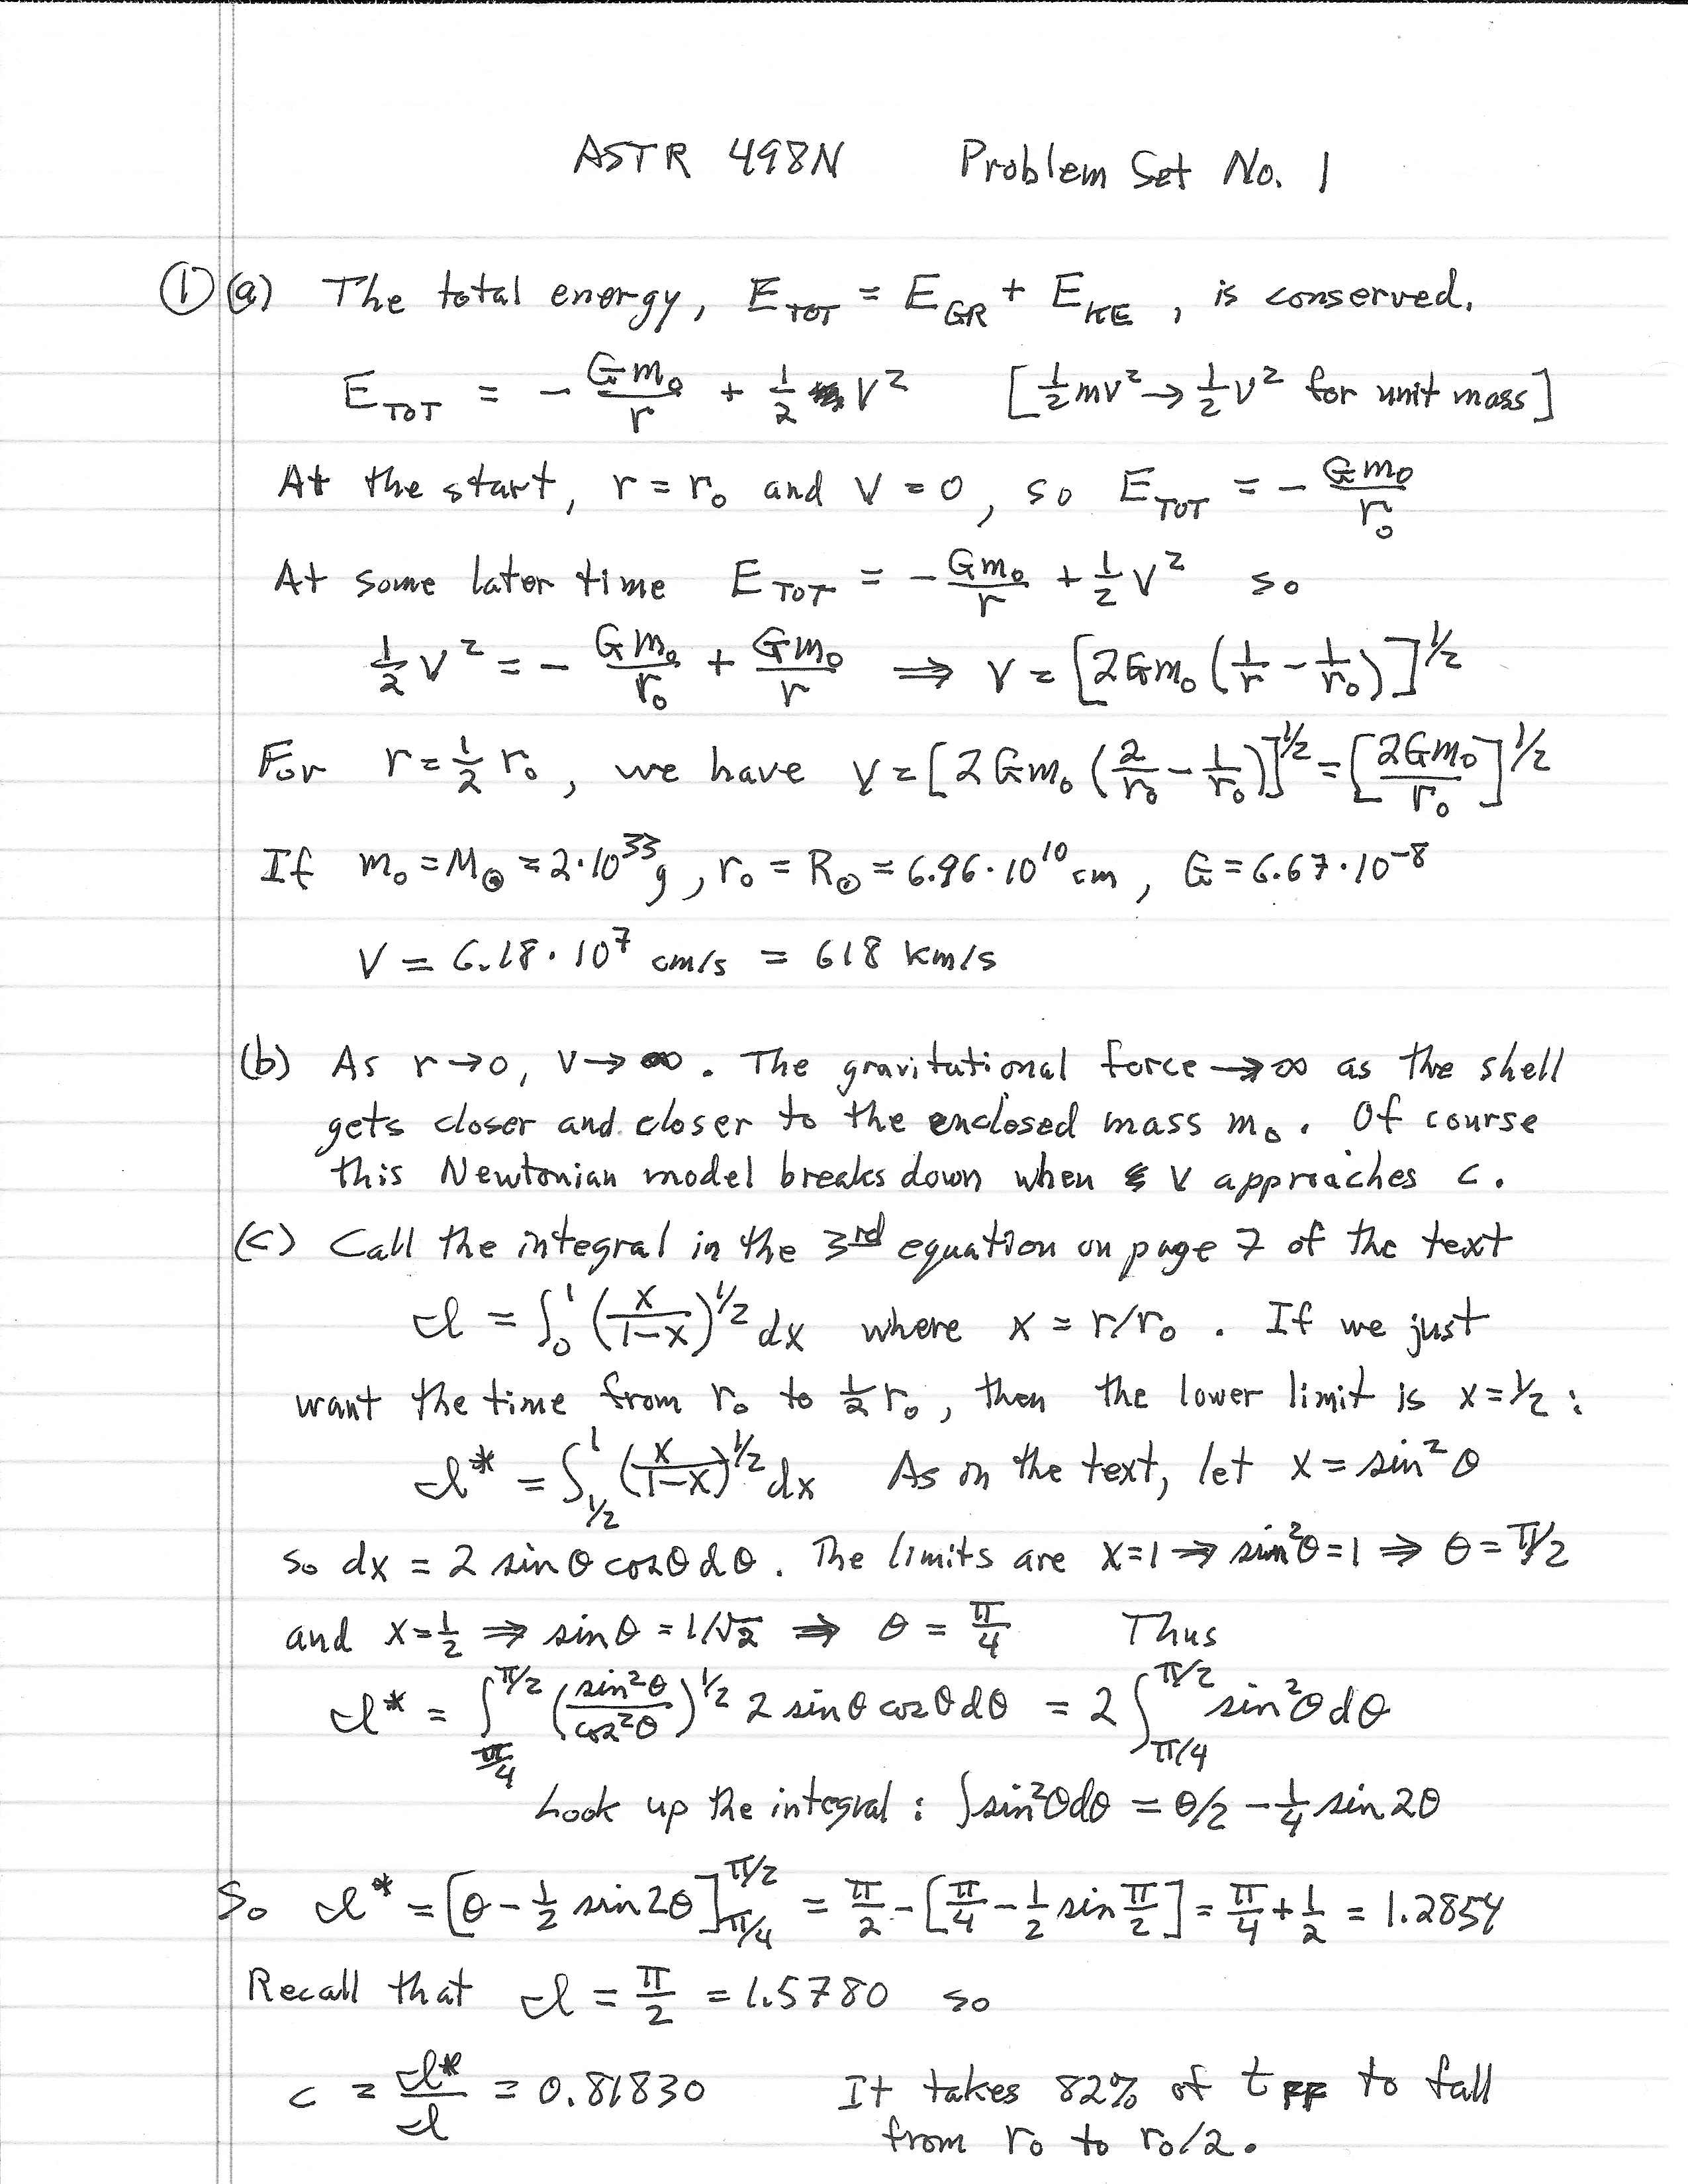 ASTR 498N Problem Set No. 1
① (a) The total energy, E_TOT = E_GR + E_KE, is conserved.
E_TOT = - Gm₀/r + 1/2 V² [1/2 mv² → 1/2 v² for unit mass]
At the start, r = r₀ and V = 0, so E_TOT = - Gm₀/r₀
At some later time E_TOT = - Gm₀/r + 1/2 V² so
1/2 V² = - Gm₀/r₀ + Gm₀/r ⟹ V = [2Gm₀(1/r - 1/r₀)]^1/2
For r = 1/2 r₀, we have V = [2Gm₀(2/r₀ - 1/r₀)]^1/2 = [2Gm₀/r₀]^1/2
If m₀ = M⊙ = 2·10³³ g, r₀ = R⊙ = 6.96·10¹⁰ cm, G = 6.67·10⁻⁸
V = 6.18·10⁷ cm/s = 618 km/s
(b) As r → 0, V → ∞. The gravitational force → ∞ as the shell
gets closer and closer to the enclosed mass m₀. Of course
this Newtonian model breaks down when V approaches c.
(c) Call the integral in the 3rd equation on page 7 of the text
I = ∫₀¹ (x/(1-x))^1/2 dx where x = r/r₀. If we just
want the time from r₀ to 1/2 r₀, then the lower limit is x = 1/2:
I* = ∫_1/2^1 (x/(1-x))^1/2 dx As in the text, let x = sin²θ
so dx = 2 sinθ cosθ dθ. The limits are x=1 ⟹ sin²θ=1 ⟹ θ = π/2
and x = 1/2 ⟹ sinθ = 1/√2 ⟹ θ = π/4 Thus
I* = ∫_π/4^π/2 (sin²θ/cos²θ)^1/2 2 sinθ cosθ dθ = 2 ∫_π/4^π/2 sin²θ dθ
Look up the integral: ∫sin²θdθ = θ/2 - 1/4 sin 2θ
So I* = [θ - 1/2 sin 2θ]_π/4^π/2 = π/2 - [π/4 - 1/2 sin π/2] = π/4 + 1/2 = 1.2854
Recall that I = π/2 = 1.5780 so
c = I*/I = 0.81830 It takes 82% of t_FF to fall
from r₀ to r₀/2.